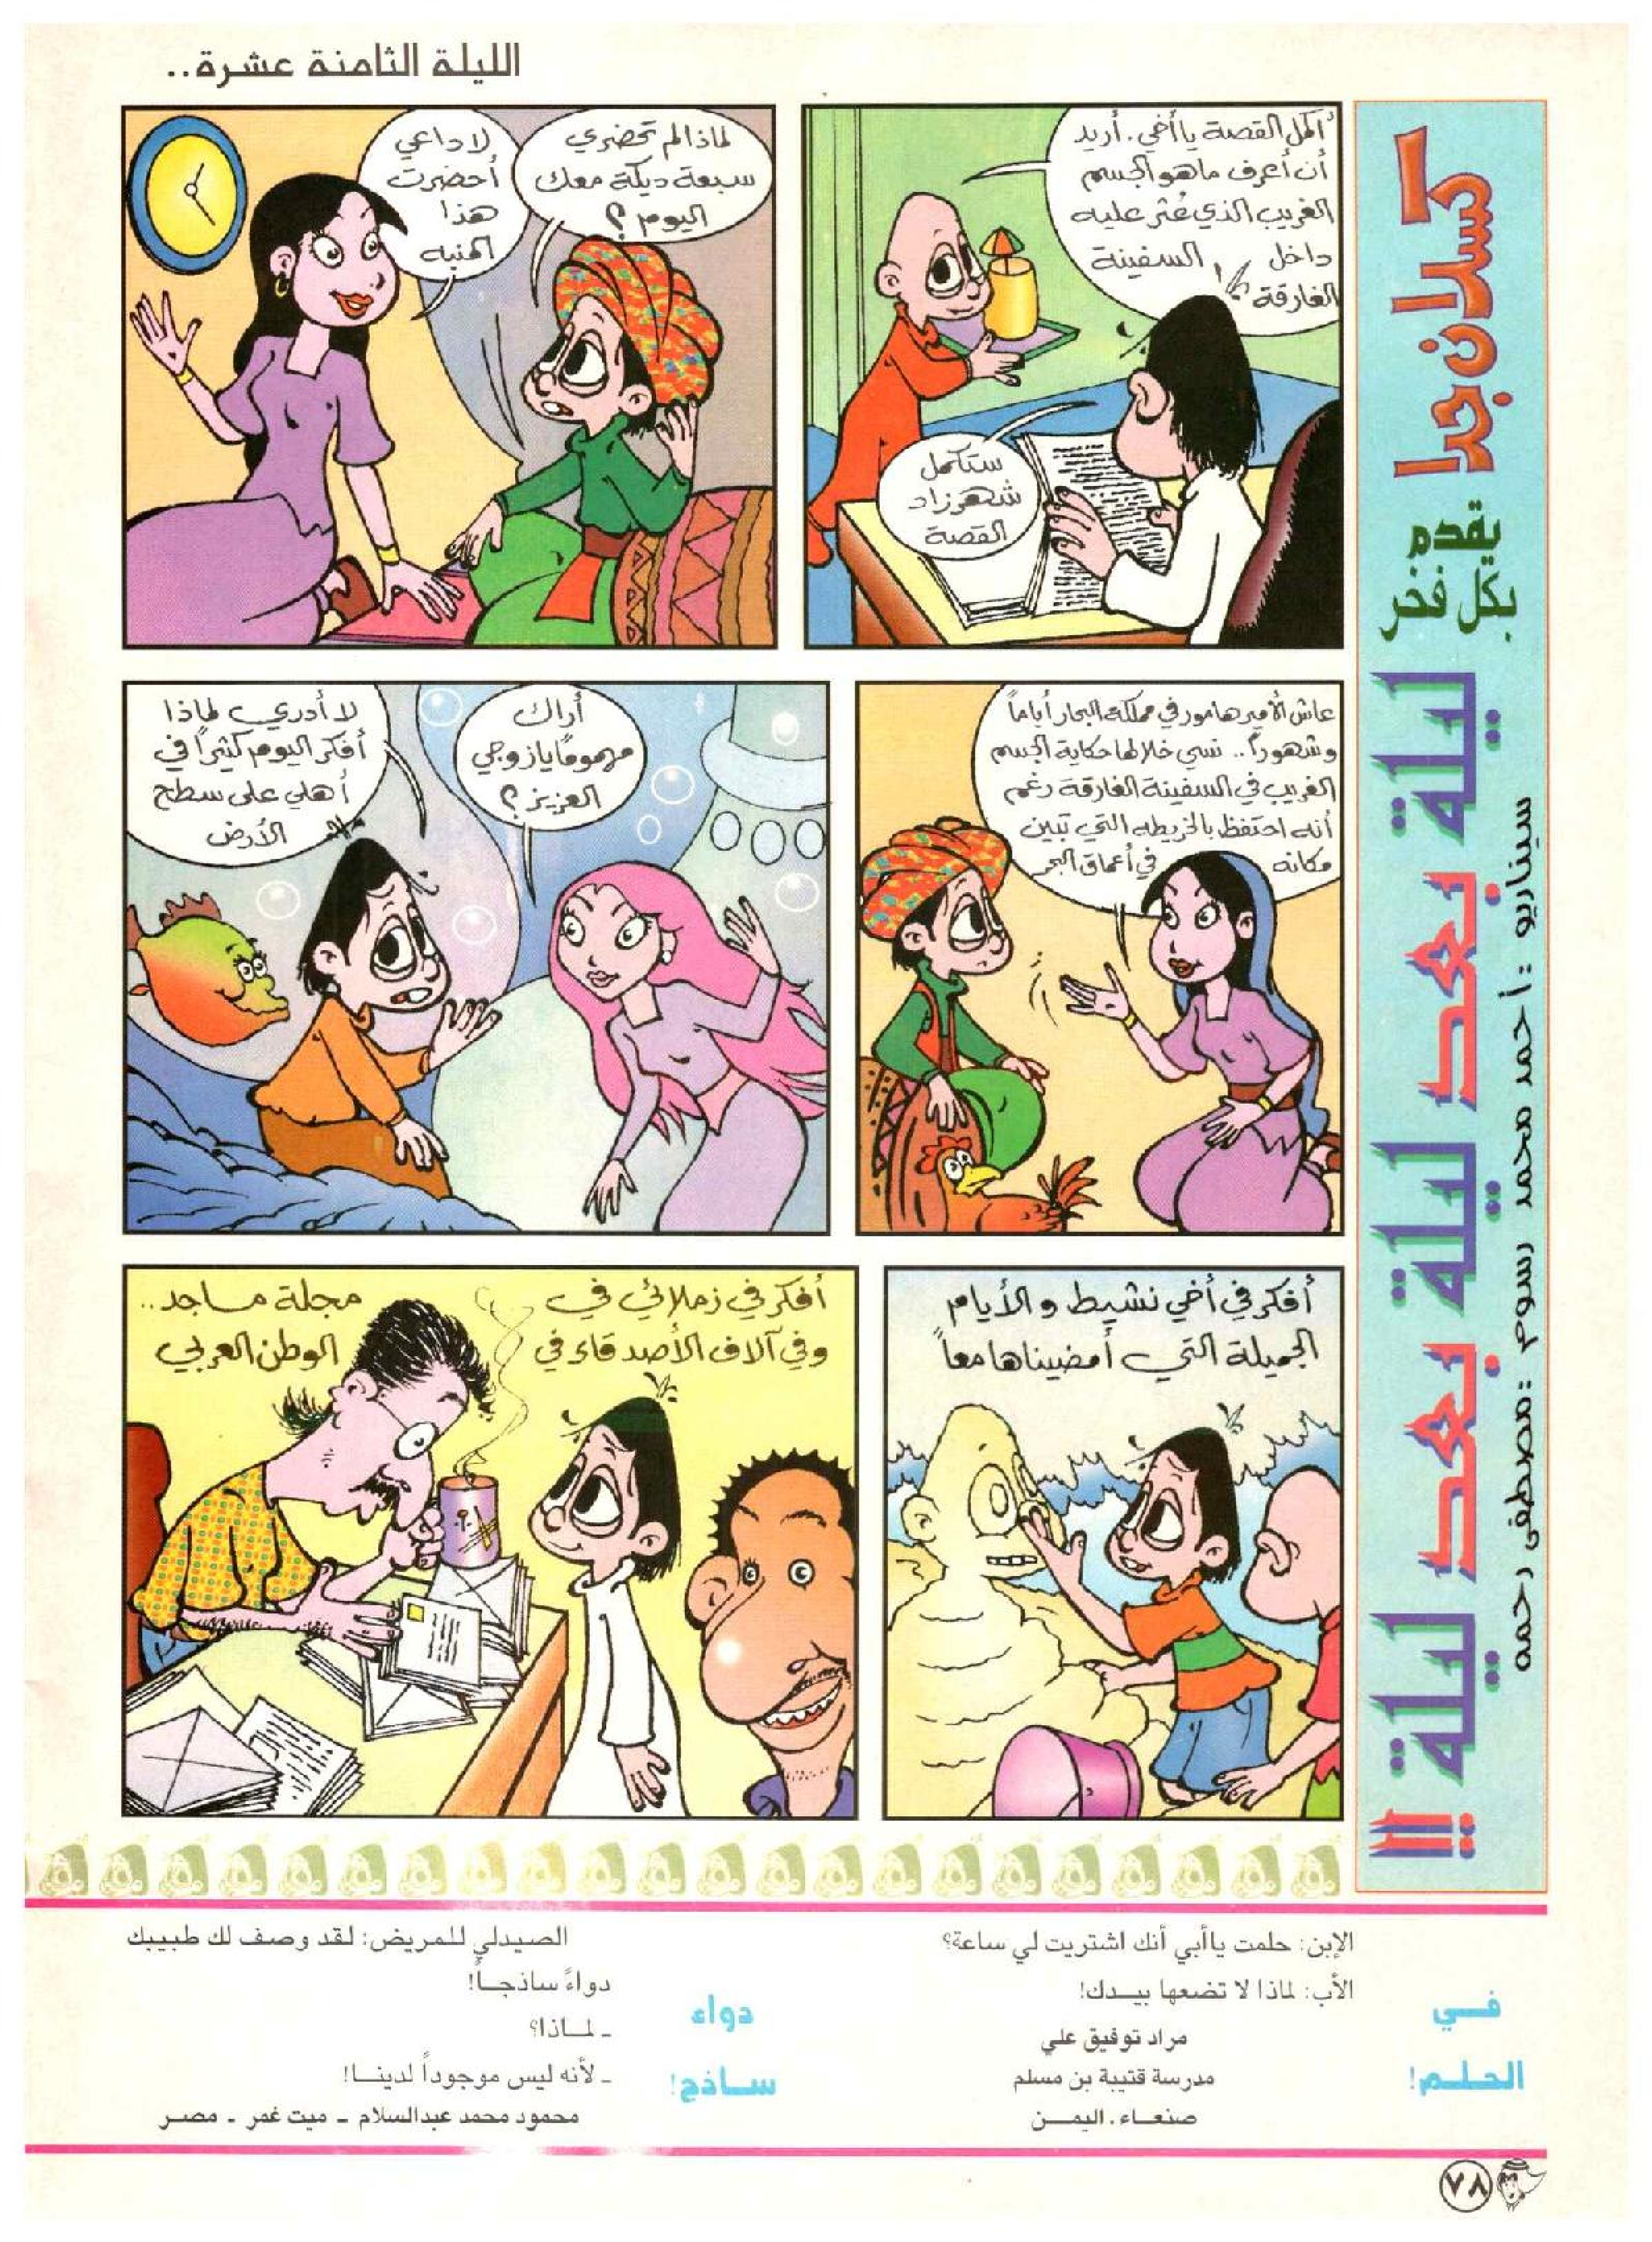 الليلة الثامنة عشرة..
كسلان جدا
يقدم
بكل فخر
ليلة بعد ليلة بعد ليلة !!
سيناريو : أحمد محمد رسوم : مصطفى رحمه
أكمل القصة يا أخي. أريد
أن أعرف ما هو الجسم
الغريب الذي عُثر عليه
داخل السفينة
الغارقة
ستكمل
شهرزاد
القصة
لماذا لم تحضري
سبعة ديكة معك
اليوم؟
لا داعي
أحضرت
هذا
المنبه
عاش الأمير هامور في مملكة البحار أياماً
وشهوراً.. نسي خلالها حكاية الجسم
الغريب في السفينة الغارقة رغم
أنه احتفظ بالخريطه التي تبين
مكانه في أعماق البحر
أراك
مهموماً يا زوجي
العزيز؟
لا أدري لماذا
أفكر اليوم كثيراً في
أهلي على سطح
الأرض
أفكر في أخي نشيط والأيام
الجميلة التي أمضيناها معاً
أفكر في زملائي في مجلة ماجد..
وفي آلاف الأصدقاء في الوطن العربي
في
الحلم!
الإبن: حلمت يا أبي أنك اشتريت لي ساعة؟
الأب: لماذا لا تضعها بيدك!
مراد توفيق علي
مدرسة قتيبة بن مسلم
صنعاء. اليمن
دواء
ساذج!
الصيدلي للمريض: لقد وصف لك طبيبك
دواءً ساذجاً!
ـ لماذا؟
ـ لأنه ليس موجوداً لدينا!
محمود محمد عبدالسلام ـ ميت غمر ـ مصر
٧٨